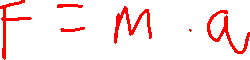 F = m · a